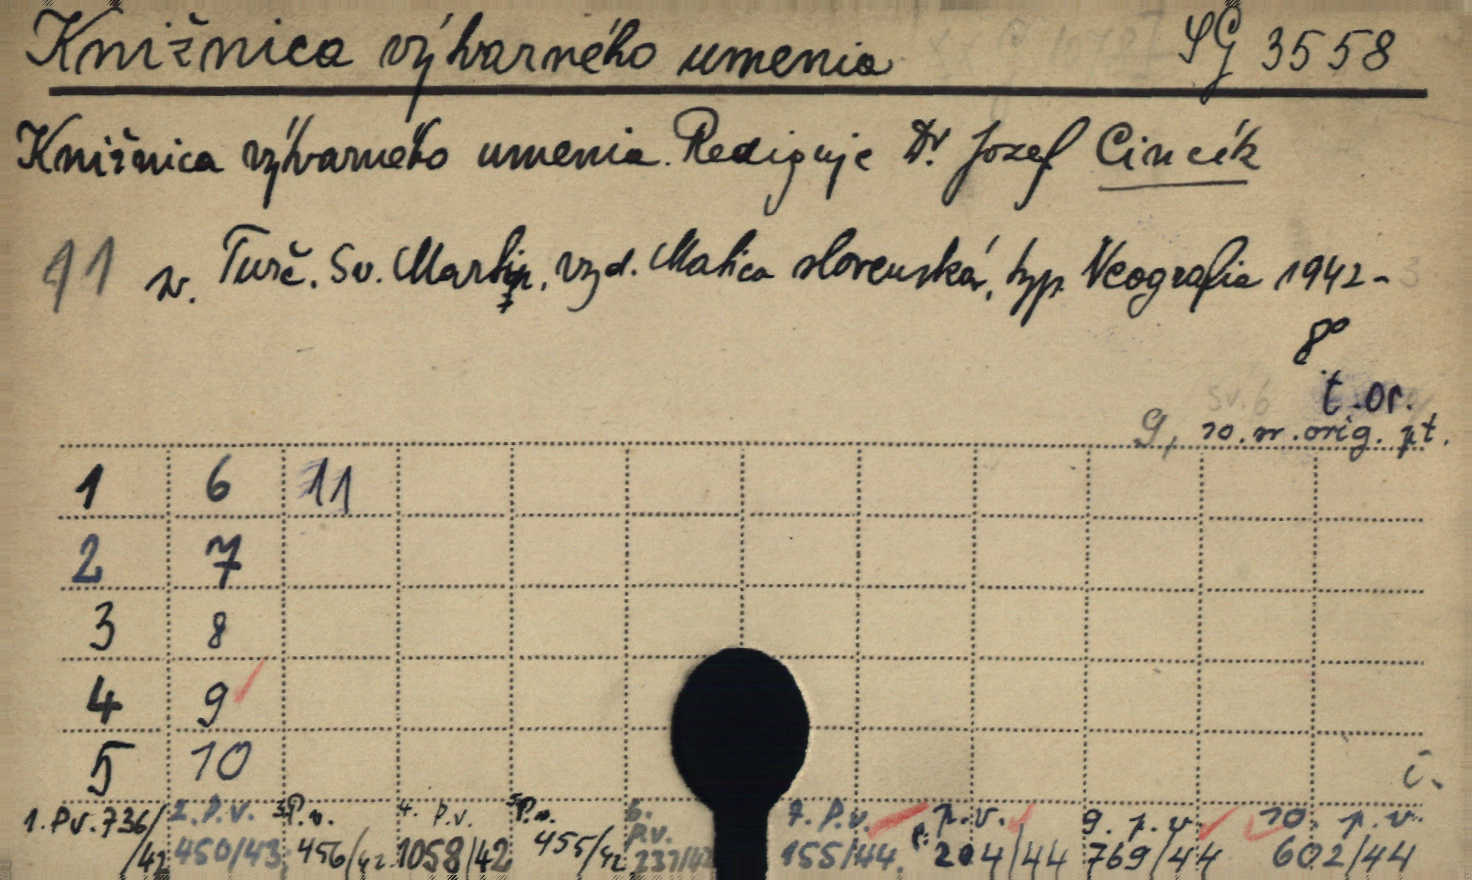 Knižnica výtvarného umenia SG 3558
Knižnica výtvarného umenia. Rediguje Dr. Jozef Cincík
11 zv. Turč. Sv. Martin, vyd. Matica slovenská, typ. Neografia 1942-3
8°
sv. 6 t. or.
9, 10. zv. orig. pt.
1 6 11
2 7
3 8
4 9
5 10
č.
1. P.v. 736/42 2. P.v. 450/43 3. P.v. 456/42 4. P.v. 1058/42 5. P.v. 455/42 6. P.v. 237/42 7. P.v. 155/44. 8. p.v. 204/44 9. p.v. 769/44 10. p.v. 602/44